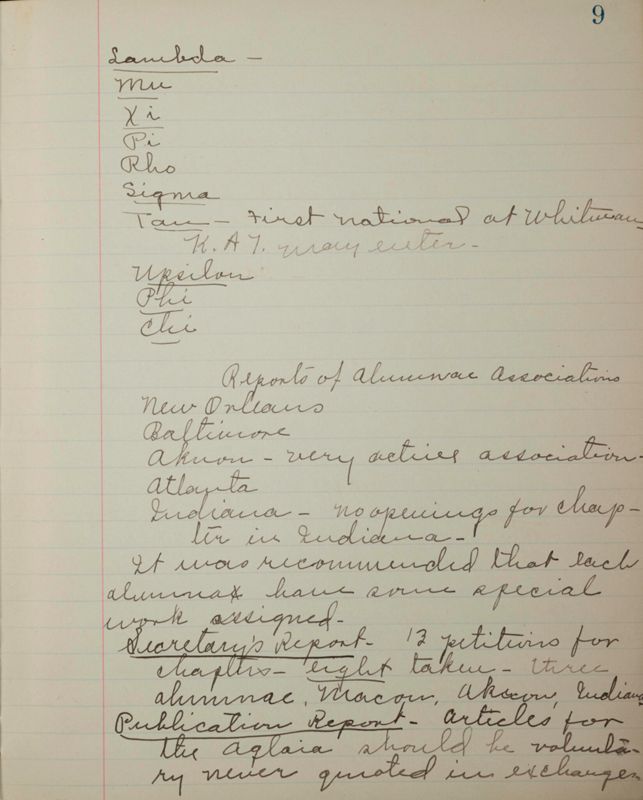 9
Lambda -
Mu
Xi
Pi
Rho
Sigma
Tau - First national at Whitman -
K. A. T. may enter -
Upsilon
Phi
Chi
Reports of Alumnae Associations
New Orleans
Baltimore
Akron - very active association -
Atlanta
Indiana - no openings for chap-
ter in Indiana -
It was recommended that each
alumnae have some special
work assigned -
Secretary's Report - 12 petitions for
chapters - eight taken - three
alumnae, Macon, Akron, Indiana
Publication Report - Articles for
the Aglaia should be volunta-
ry never quoted in exchanges